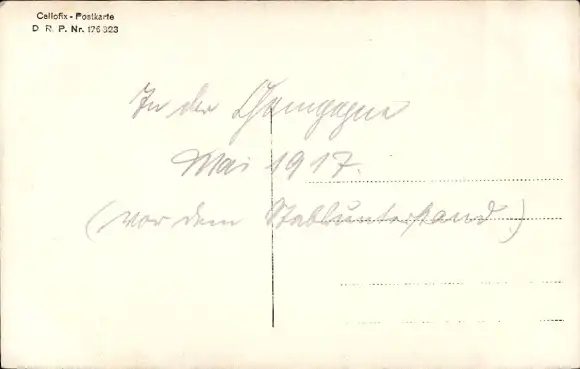 Cellofix-Postkarte
D. R. P. Nr. 176 323
In der Champagne
Mai 1917.
(vor dem Stabsunterstand)